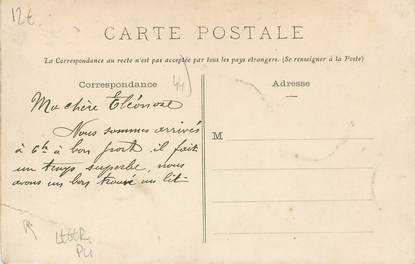 12€
CARTE POSTALE
La Correspondance au recto n'est pas acceptée par tous les pays étrangers. (Se renseigner à la Poste)
Correspondance
Adresse
Ma chère Eléonore
Nous sommes arrivés
à 6h à bon port il fait
un temps superbe, nous
avons un bon trouvé un lit
M